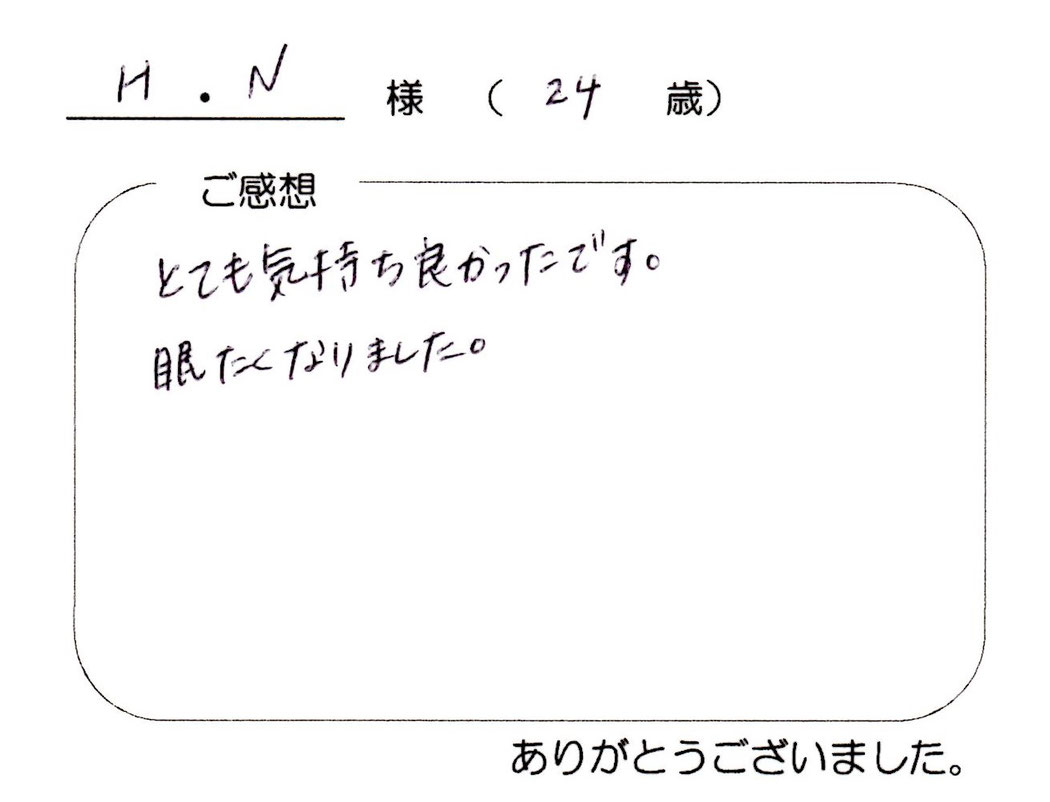 H . N 様 （ 24 歳）
ご感想
とても気持ち良かったです。
眠たくなりました。
ありがとうございました。